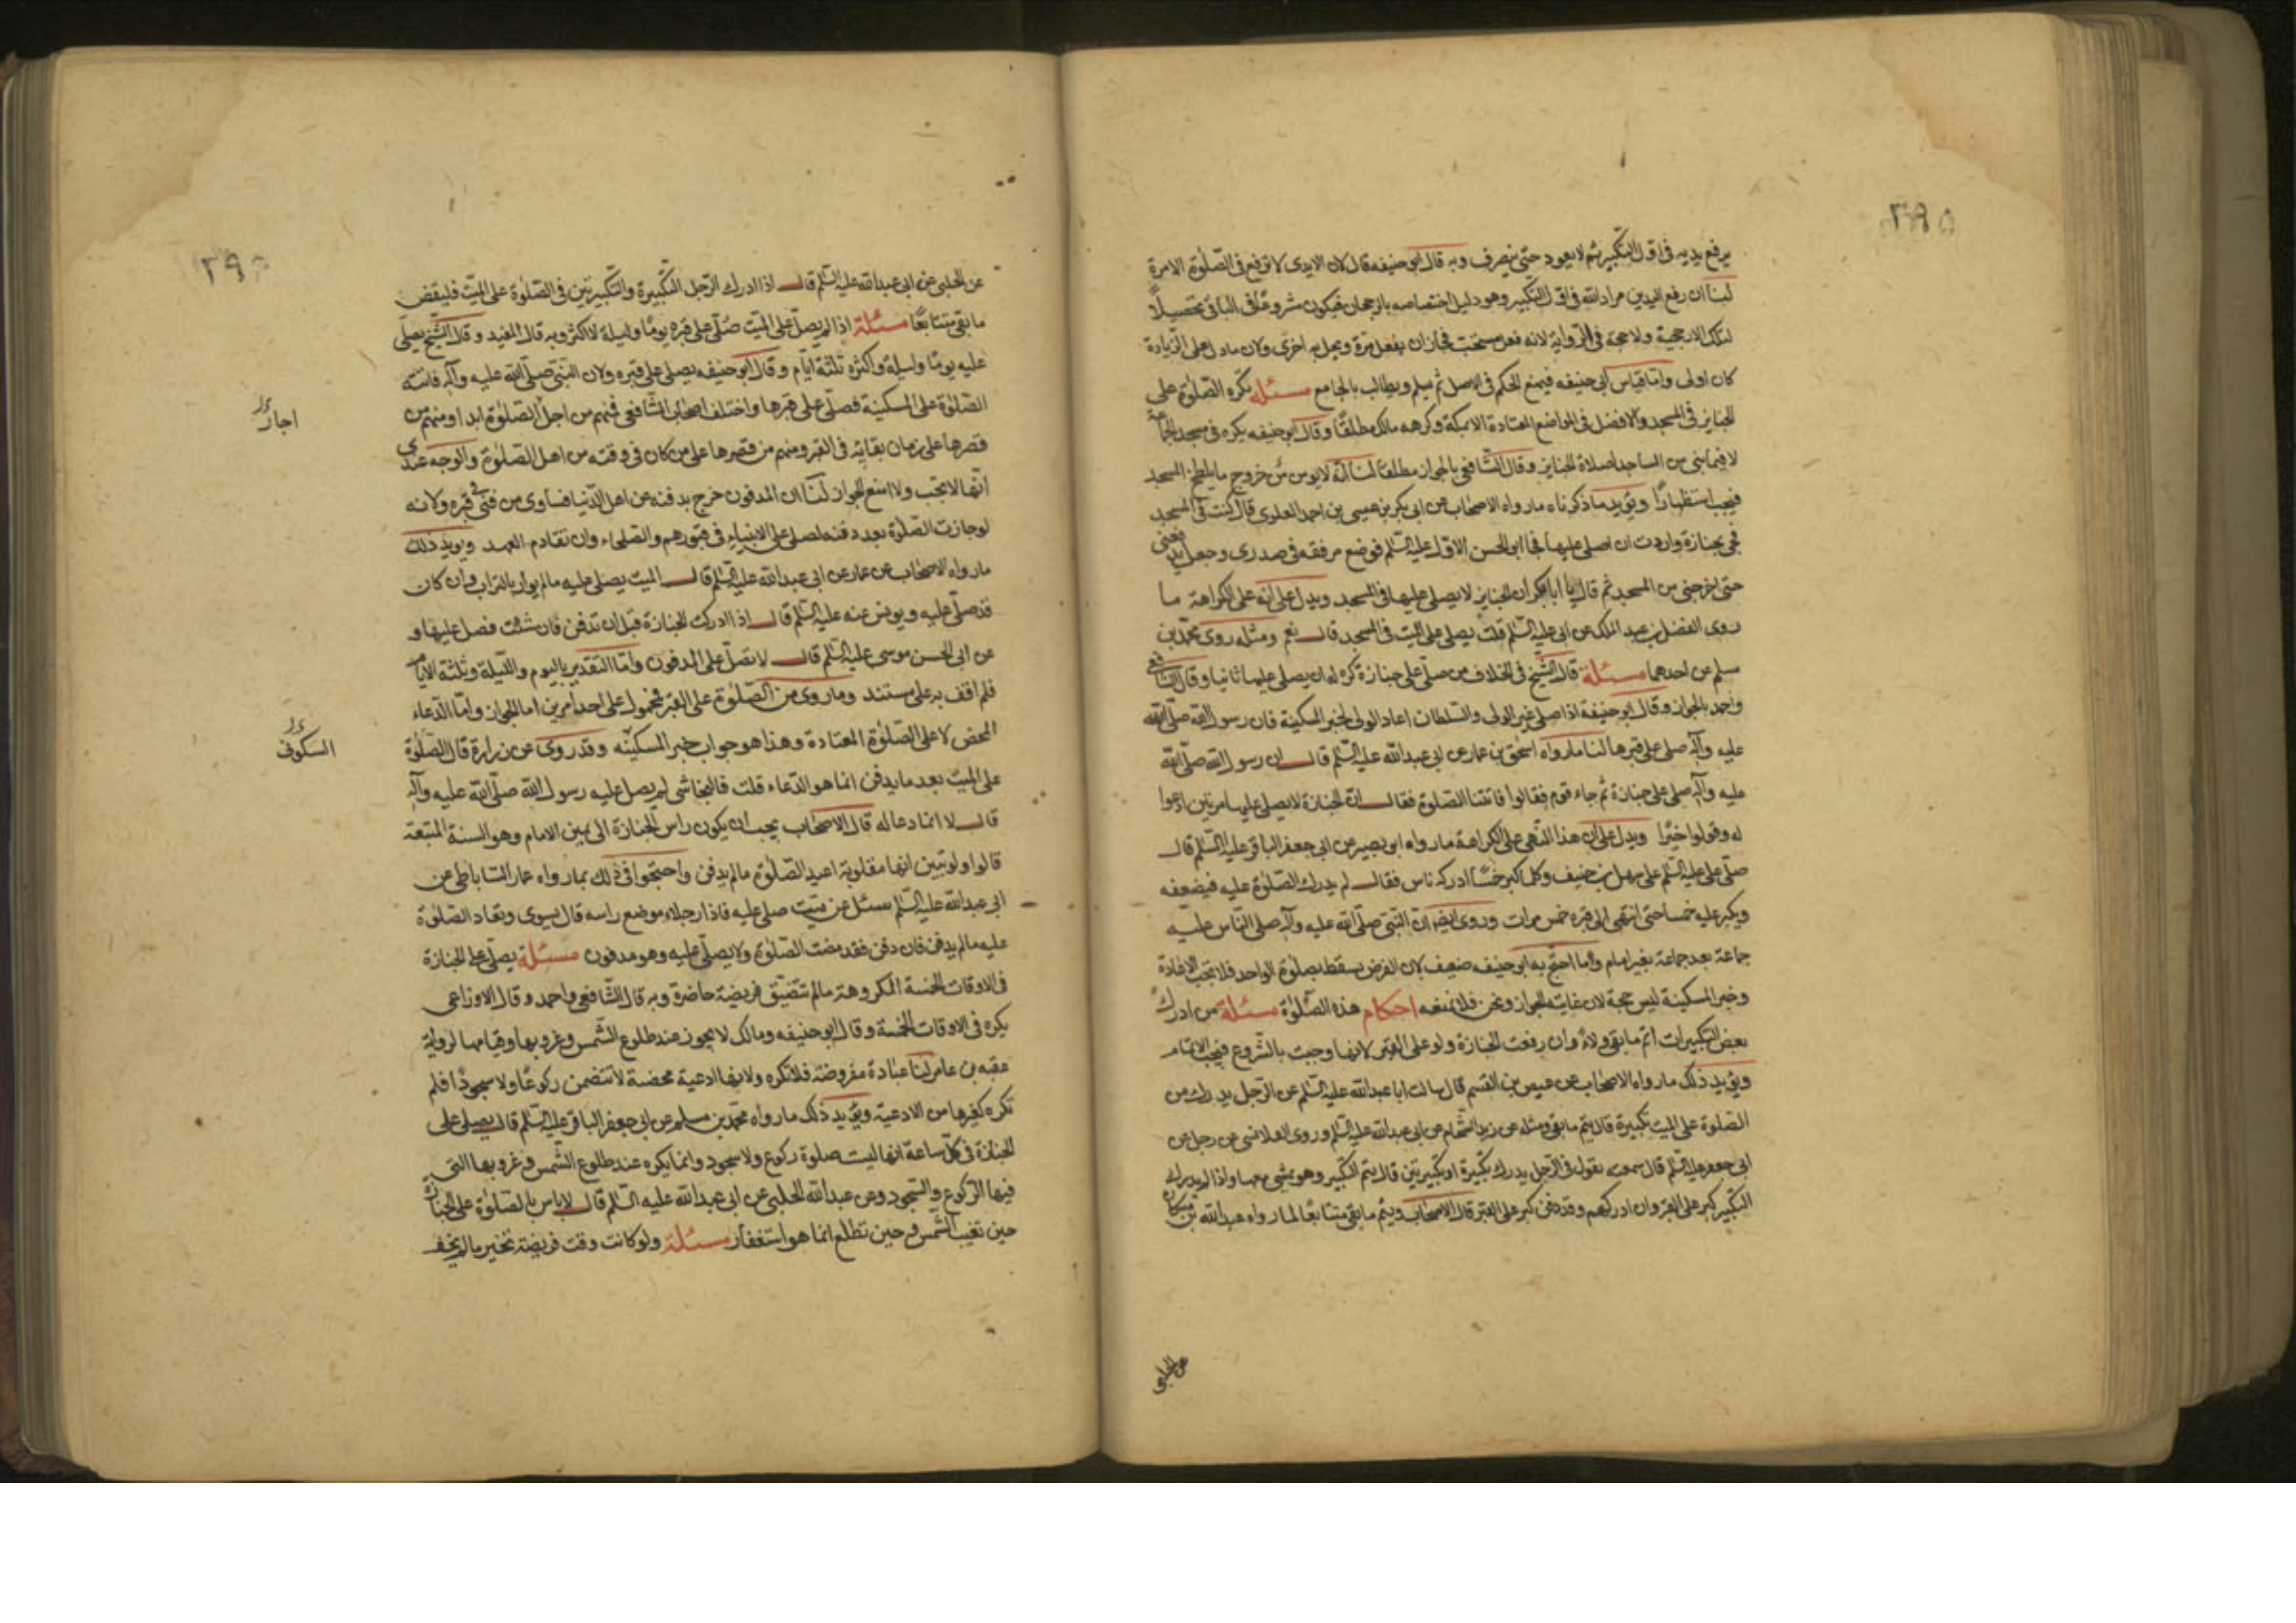 ٢٩٥
يرفع يديه في اول التكبير ثم لا يعود حتى ينصرف وبه قال ابو حنيفه قال لان الايدى لا ترفع في الصلوة الا مرة
لنا ان رفع اليدين مراد الله في اول التكبير وهو دليل اختصاصه بالرجحان فيكون مشروعًا في الباقي تحصيلاً
لتلك الارجحية ولا حجة في الرواية لانه فعل مستحب فجاز ان يفعل مرة ويخل به اخرى ولان ما دل على الزيادة
كان اولى واما قياس ابي حنيفه فيمنع الحكم في الاصل ثم يسلم ويطالب بالجامع مسئلة تكره الصلوة على
الجنايز في المسجد والافضل في المواضع المعتادة الا بمكة وكرهه مالك مطلقًا وقال ابو حنيفه يكره في مسجد الجماعة
لا فيما بنى من المساجد لصلاة الجنايز وقال الشافعي بالجواز مطلقا لنا انه لا يومن من خروج ما يلطخ المسجد
فيجب استظهارًا ويؤيد ما ذكرناه ما رواه الاصحاب عن ابي بكر بن عيسى بن احمد العلوى قال كنت في المسجد
فجئ بجنازة واردت ان اصلى عليها فجا ابو الحسن الاول عليه السلم فوضع مرفقه في صدرى وجعل يدفعني
حتى اخرجني من المسجد ثم قال يا ابا بكر ان الجنايز لا يصلى عليها في المسجد ويدل على انه على الكراهة ما
روى الفضل بن عبد الملك عن ابي عليه السلم قلت يصلى على الميت في المسجد قال نعم ومثله روى محمد بن
مسلم عن احدهما مسئلة قال الشيخ في الخلاف من صلى على جنازة كره له ان يصلى عليها ثانيا وقال الشافعي
واحمد بالجواز وقال ابو حنيفة اذا صلى غير الولى والسلطان اعاد الولى لخبر المسكينة فان رسول الله صلى الله
عليه وآله صلى على قبرها لنا ما رواه اسحق بن عمار عن ابي عبد الله عليه السلم قال ان رسول الله صلى الله
عليه وآله صلى على جنازة ثم جاء قوم فقالوا فاتتنا الصلوة فقال ان الجنازة لا يصلى عليها مرتين ادعوا
له وقولوا خيرًا ويدل على ان هذا النهى على الكراهة ما رواه ابو بصير عن ابي جعفر الباقر عليه السلم قال
صلى على عليه السلم على سهل بن حنيف وكلما كبر خمسًا ادركه ناس فقال لم يدرك الصلوة عليه فيضعفه
ويكبر عليه خمسا حتى انتهى الى قبره خمس مرات وروى ايضا ان النبي صلى الله عليه وآله صلى الناس عليه
جماعة بعد جماعة بغير امام واما احتج به ابو حنيفه ضعيف لان الفرض يسقط بصلوة الواحد فلا تجب الاعادة
وخبر المسكينة ليس حجة لان غايته الجواز ونحن فلا نمنعه احكام هذه الصلوة مسئلة من ادرك
بعض التكبيرات اتم ما بقى ولاءً وان رفعت الجنازة ولو على القبر لانها وجبت بالشروع فيجب الاتمام
ويؤيد ذلك ما رواه الاصحاب عن عيص بن القسم قال سالت ابا عبد الله عليه السلم عن الرجل يدرك من
الصلوة على الميت تكبيرة قال يتم ما بقى ومثله عن زيد الشحام عن ابي عبد الله عليه السلم وروى القلانسي عن رجل عن
ابي جعفر عليه السلم قال سمعته يقول في الرجل يدرك تكبيرة او تكبيرتين قال يتم التكبير وهو يمشي معها واذا لم يدرك
التكبير كبر على القبر وان ادركهم وقد دفن كبر على القبر قال الاصحاب ويتم ما بقى متتابعًا لما رواه عبد الله بن مسكان
عن الحلبي
٢٩
عن الحلبي عن ابي عبد الله عليه السلم قال اذا ادرك الرجل التكبيرة والتكبيرتين في الصلوة على الميت فليقض
ما بقى متتابعًا مسئلة اذا لم يصل على الميت صُلى على قبره يومًا وليلة لا اكثر وبه قال المفيد وقال الشيخ يصلى
عليه يومًا وليلة واكثره ثلثة ايام وقال ابو حنيفه يصلى على قبره ولان النبي صلى الله عليه وآله فاتته
الصلوة على المسكينة فصلى على قبرها واختلف اصحاب الشافعي فمنهم من اجل الصلوة ابدا ومنهم من
اجاز
قصرها على زمان بقائه في القبر ومنهم من قصرها على من كان في وقته من اهل الصلوة والوجه عندي
انها لا تجب ولا امنع الجواز لنا ان المدفون خرج بدفنه عن اهل الدنيا فساوى من فنى في قبره ولانه
لو جازت الصلوة بعد دفنه لصلى على الانبياء في قبورهم والصلحاء وان تقادم العهد ويويد ذلك
ما رواه الاصحاب عن عمار عن ابي عبد الله عليه السلم قال الميت يصلى عليه ما لم يوار بالتراب وان كان
قد صلى عليه ويونس عنه عليه السلم قال اذا ادركت الجنازة قبل ان تدفن فان شئت فصل عليها و
عن ابي الحسن موسى عليه السلم قال لا تصل على المدفون واما التقدير باليوم والليلة وثلثة الايام
فلم اقف به على مستند وما روى من الصلوة على القبر فمحمول على احد امرين اما الجواز واما الدعاء
المحض لا على الصلوة المعتادة وهذا هو جواب خبر المسكينه وقد روى عن زرارة قال الصلوة
السكونى
على الميت بعد ما يدفن انما هو الدعاء قلت فالنجاشي لم يصل عليه رسول الله صلى الله عليه وآله
قال لا انما دعا له قال الاصحاب يجب ان يكون راس الجنازة الى يمين الامام وهو السنة المتبعة
قالوا ولو تبين انها مقلوبة اعيد الصلوة ما لم يدفن واحتجوا في ذلك بما رواه عمار الساباطي عن
ابي عبد الله عليه السلم سئل عن ميت صلى عليه فاذا رجلاه موضع راسه قال يسوى وتعاد الصلوة
عليه ما لم يدفن فان دفن فقد مضت الصلوة ولا يصلى عليه وهو مدفون مسئلة يصلى على الجنازة
في الاوقات الخمسة المكروهة ما لم تتضيق فريضة حاضرة وبه قال الشافعي واحمد وقال الاوزاعي
يكره في الاوقات الخمسة وقال ابو حنيفه ومالك لا يجوز عند طلوع الشمس وغروبها وقيامها لرواية
عقبه بن عامر لنا عبادة مفروضة فلا تكره ولانها ادعية محضة لا تتضمن ركوعًا ولا سجودًا فلم
تكره كغيرها من الادعية ويؤيد ذلك ما رواه محمد بن مسلم عن ابي جعفر الباقر عليه السلم قال يصلى على
الجنازة في كل ساعة انها ليست صلوة ركوع ولا سجود وانما يكره عند طلوع الشمس وغروبها التي
فيها الركوع والسجود وعن عبد الله الحلبي عن ابي عبد الله عليه السلم قال لا باس بالصلوة على الجنازة
حين تغيب الشمس وحين تطلع انما هو استغفار مسئلة ولو كانت وقت فريضة تخير ما لم يخف